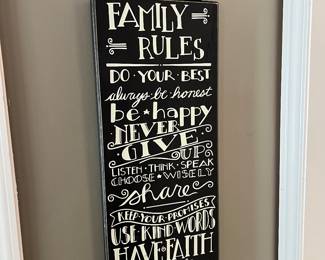 FAMILY
RULES
DO • YOUR • BEST
always • be • honest
be ★ happy
NEVER
GIVE
UP
LISTEN • THINK • SPEAK
CHOOSE ★ WISELY
share
KEEP • YOUR • PROMISES
USE • KIND • WORDS
HAVE • FAITH